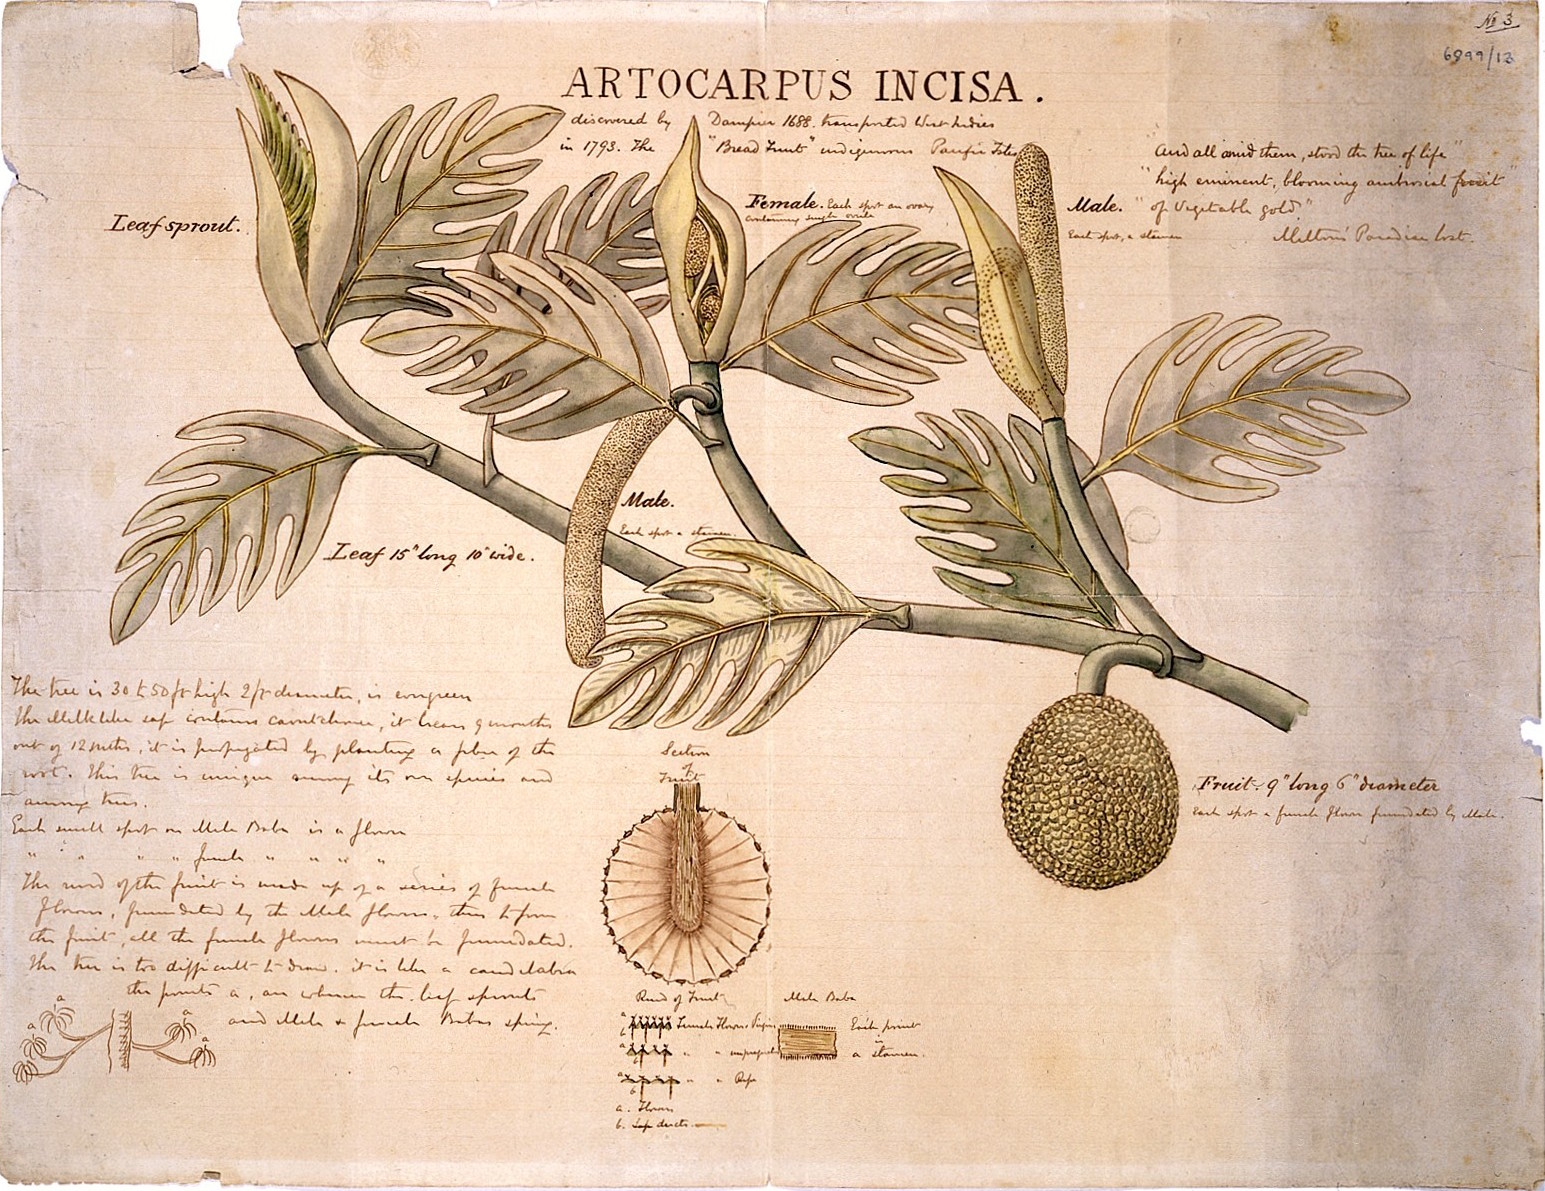 No 3
6899/13
ARTOCARPUS INCISA.
discovered by Dampier 1688. transported West Indies
in 1793. The "Bread Fruit" indigenous Pacific Isles
"And all amid them, stood the tree of life"
"high eminent, blooming ambrosial fruit"
"of Vegetable gold."
Milton's Paradise lost.
Leaf sprout.
Female. Each spot an ovary
containing single ovule
Male.
Each spot, a stamen
Male.
Each spot a stamen.
Leaf 15" long 10" wide.
The tree is 30 to 50 ft high 2 ft diameter, is evergreen
The Milk like sap contains caoutchouc, it bears 9 months
out of 12 mths, it is propagated by planting a piece of the
root. This tree is unique among its own species and
among trees.
Each small spot on Male Baba is a flower
" " " " female " " " "
The rind of the fruit is made up of a series of female
flowers, fecundated by the Male flowers, thus to form
the fruit, all the female flowers must be fecundated.
The tree is too difficult to draw. it is like a candelabra
the points a, are whence the leaf sprouts
and Male & female Babas spring.
a
a
a
a
Section
of
Fruit
Fruit. 9" long 6" diameter
Each spot a female flower fecundated by Male.
Rind of Fruit
a
b
Female Flowers Virgin
a
" " impregnated
a
b
" " Ripe
a. Flowers
b. Sap ducts.
Male Baba
Each point
is
a stamen.